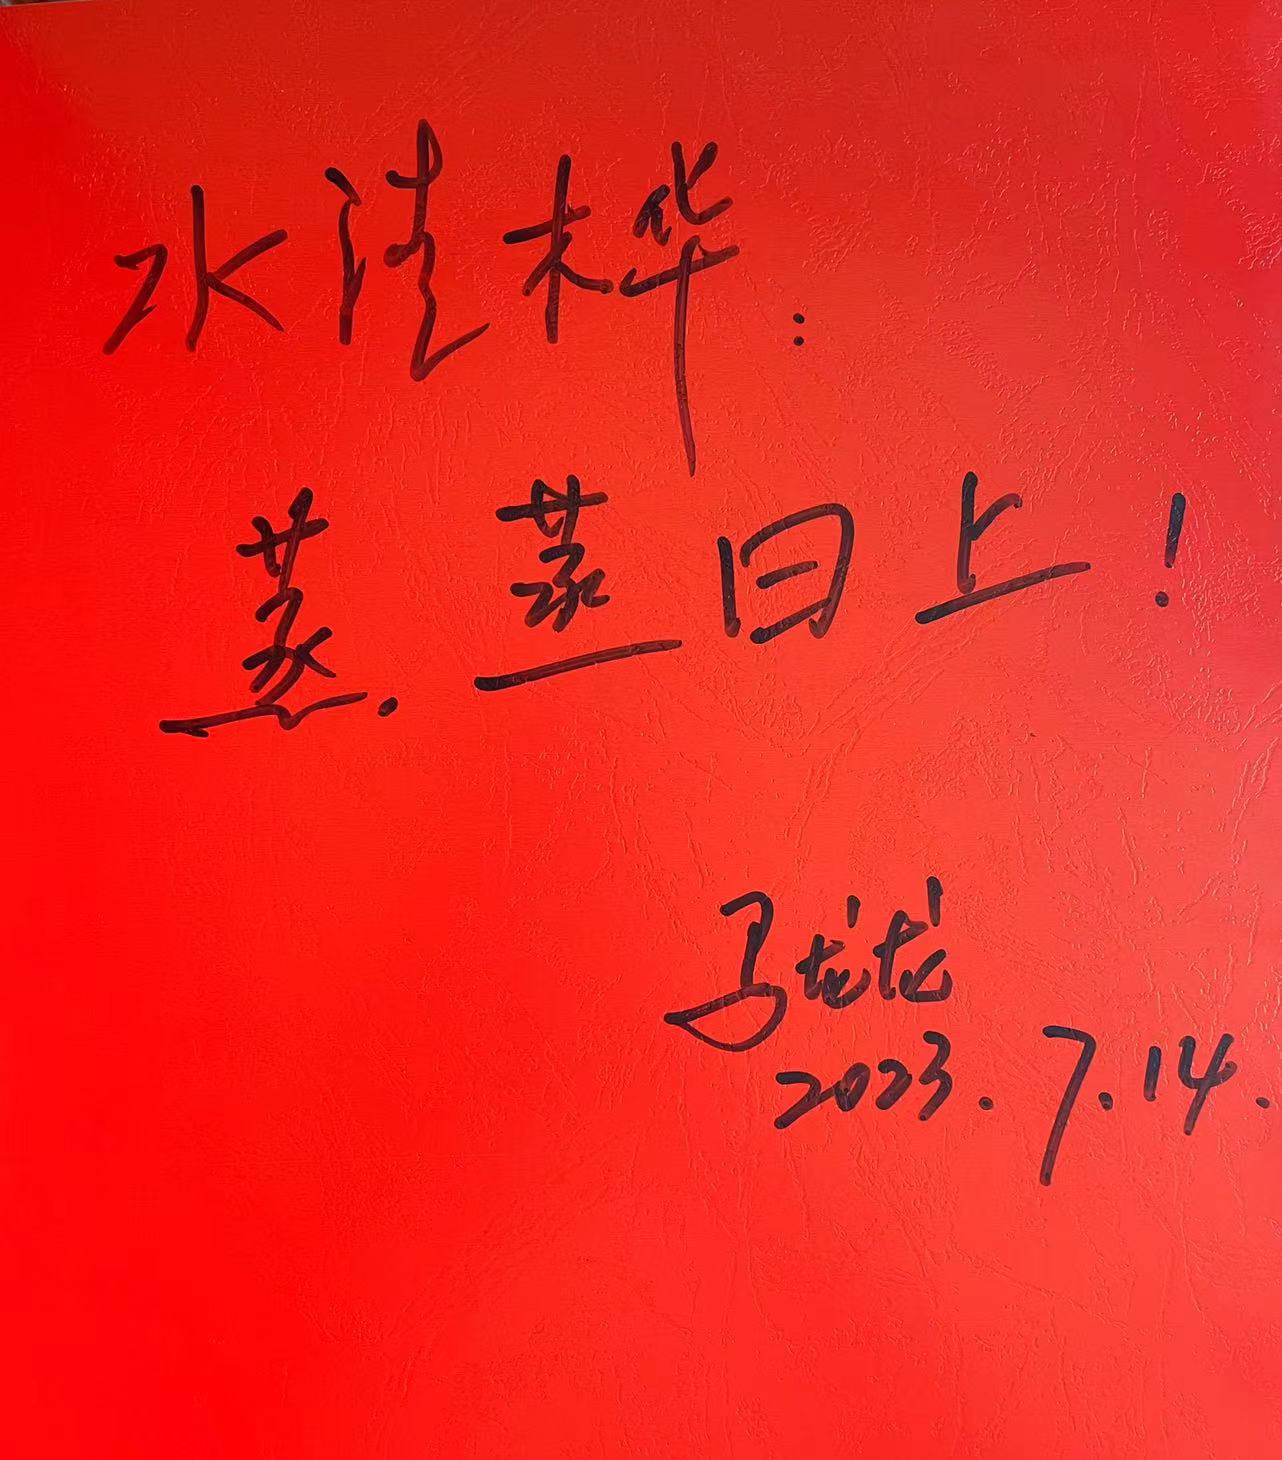 水清桦:
蒸蒸日上!
马龙龙
2023.7.14.